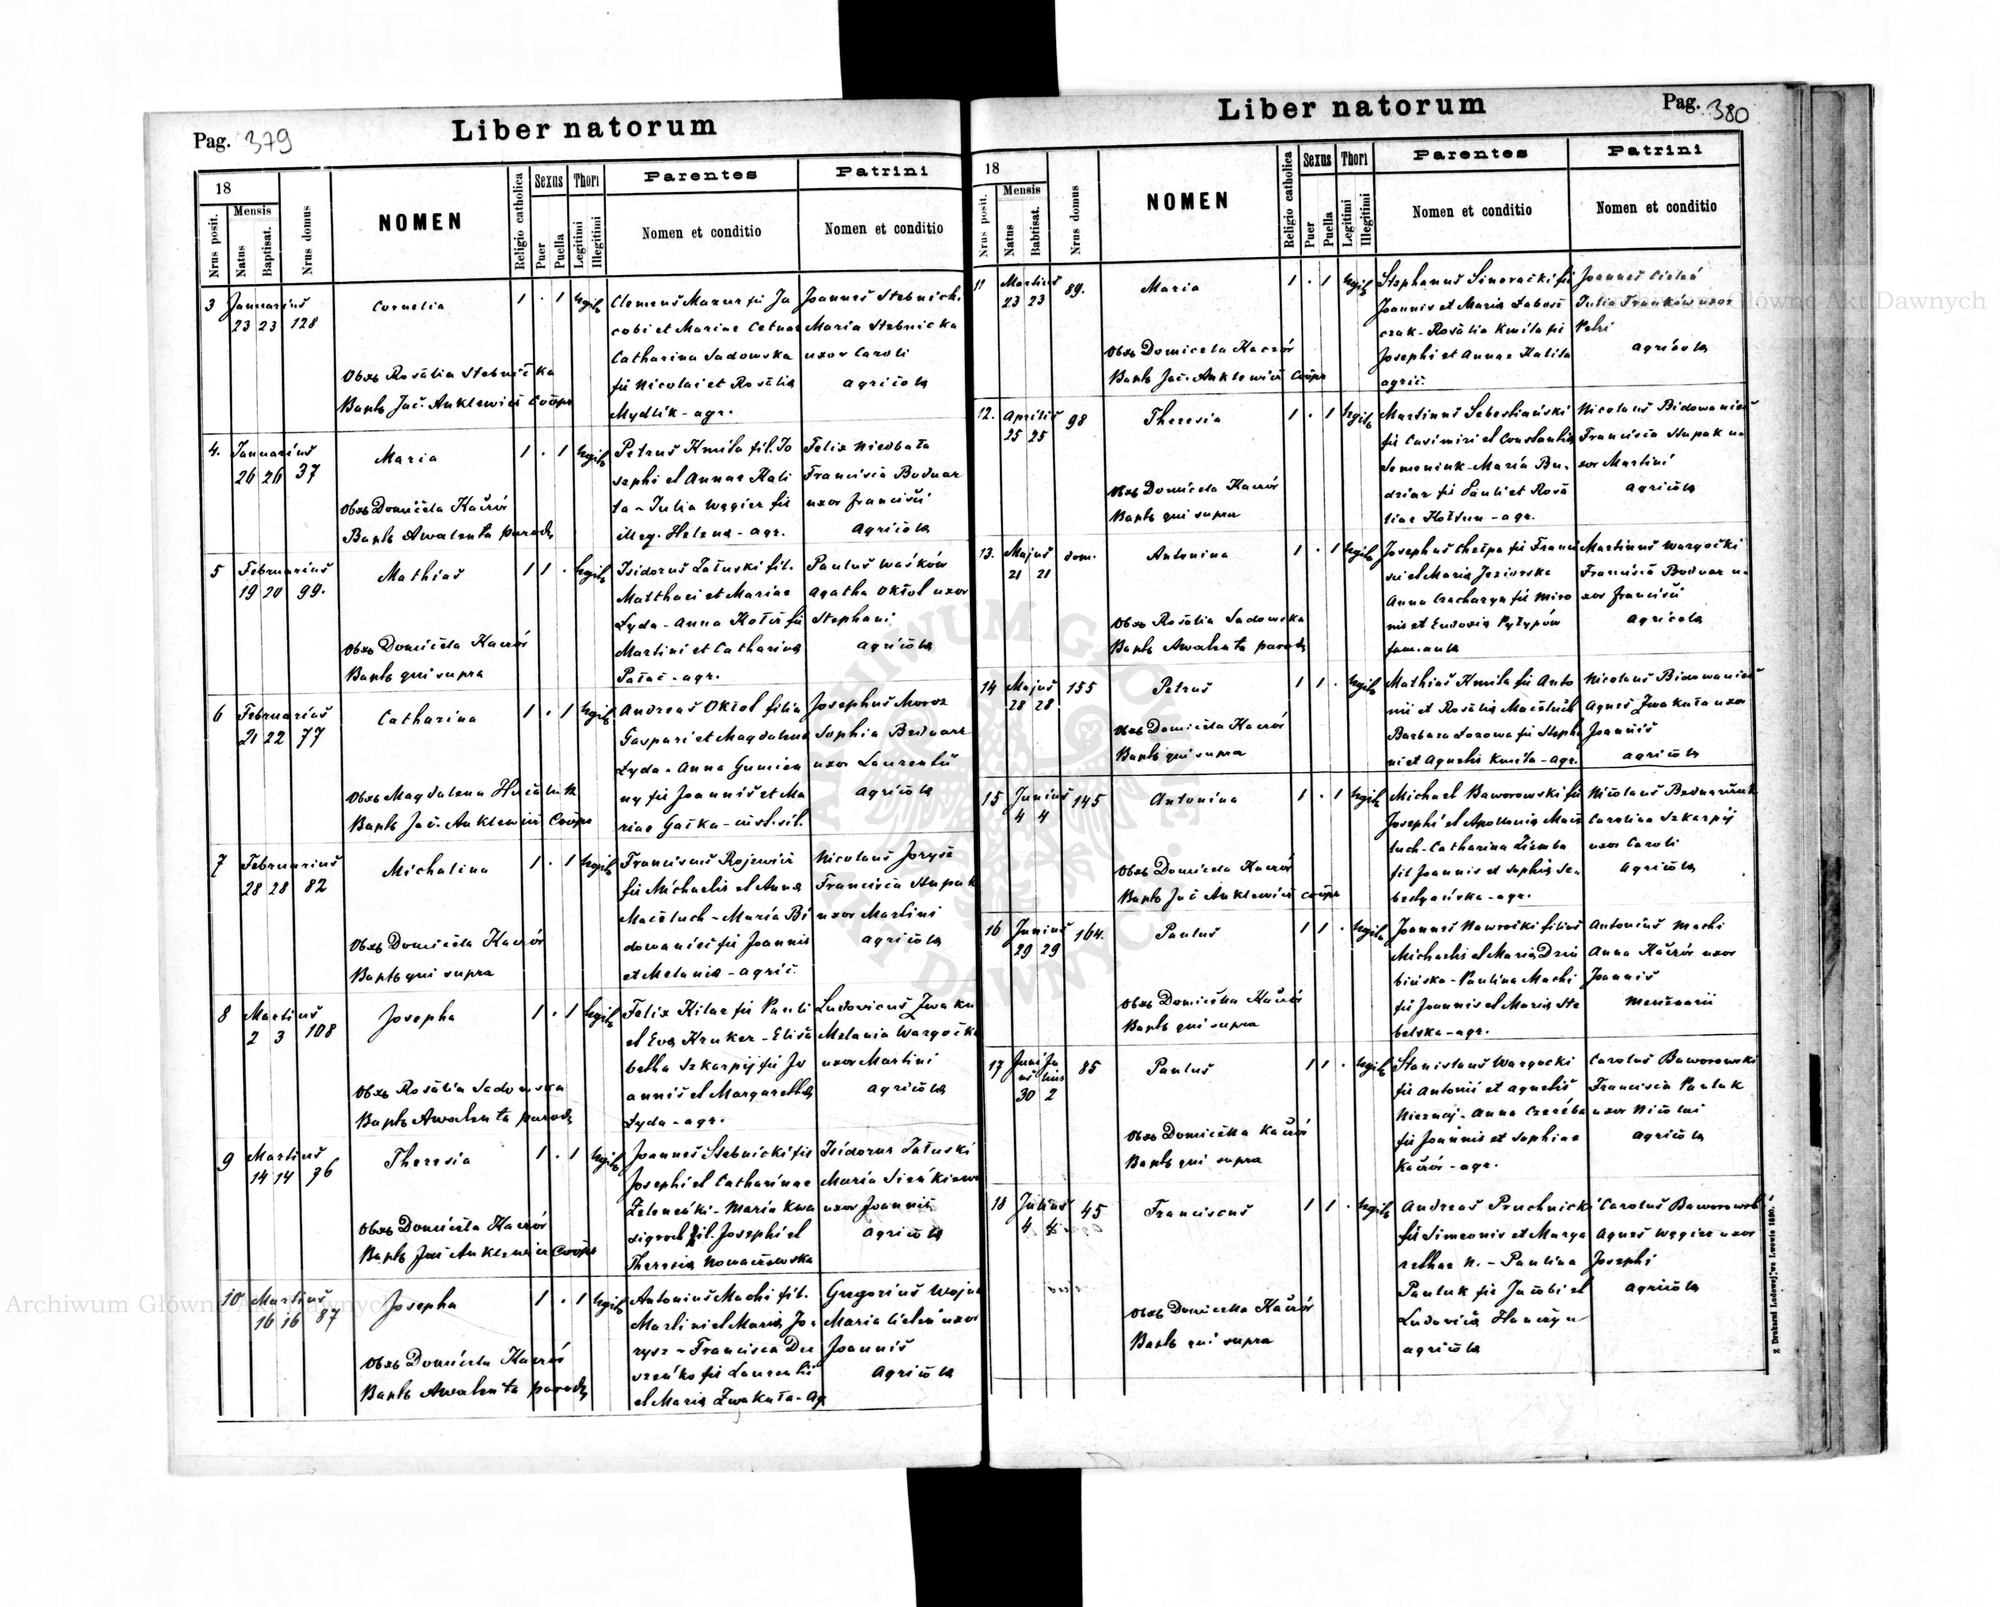 Pag. 379
Liber natorum
18
Nrus posit.
Mensis
Natus
Baptisat.
Nrus domus
NOMEN
Religio catholica
Sexus
Puer
Puella
Thori
Legitimi
Illegitimi
Parentes
Nomen et conditio
Patrini
Nomen et conditio
3 Januarius Cornelia 1 . 1 legit. Clemens Mazur fil Ja Joannes Stebnicki
23 23 128 cobi et Mariae Cetnar Maria Stebnicka
Catharina Sadowska uxor Caroli
Obst. Rosalia Stebnicka fil Nicolai et Rosalia agricola
Bapt. Jac. Anklewicz Coop. Mydlik - agr.
4. Januarius Maria 1 . 1 legit. Petrus Kmita fil. Jo Felix Niedbała
26 26 37 sephi et Annae Kali Francisca Bednarz
ta - Julia Węgier fil uxor Francisci
Obst. Domicela Kaczor illeg. Helena - agr. Agricola
Bapt. Awalenta paroch.
5 Februarius Mathias 1 1 . legit. Isidorus Załuski fil. Paulus Waśków
19 20 99. Matthaei et Mariae Agatha Okłol uxor
Łyda - Anna Kołcz fil Stephani
Obst. Domicela Kaczor Martini et Catharina agricola
Bapt. qui supra - agr.
6 Februarius Catharina 1 . 1 legit. Andreas Okłol filia Josephus Moroz
21 22 77 Gaspari et Magdalena Sophia Bednarz
Łyda - Anna Gumien uxor Laurentii
Obst. Magdalena ny fil Joannis et Ma agricola
Bapt. Jac. Anklewicz Coop. riae Gaska -
7 Februarius Michalina 1 . 1 legit. Franciscus Rojewicz Nicolaus Jorysz
28 28 82 fil Michaelis et Anna Francisca Stupak
Maceluch - Maria Bi uxor Martini
Obst. Domicela Kaczor dowaniec fil Joannis agricola
Bapt. qui supra et Melania - agric.
8 Martius Josepha 1 . 1 legit. Felix Kilar fil Pauli Ludovicus Zwaku
2 3 108 et Eva Kruker - Elisa Melania Wargocka
betha Szkarpij fil Jo uxor Martini
Obst. Rosalia Sadowska annis et Margaretha agricola
Bapt. Awalenta paroch. Łyda - agr.
9 Martius Theresia 1 . 1 legit. Joannes Stebnicki fil Isidorus Załuski
14 14 96 Josephi et Catharinae Maria
Zelenczki - Maria Kwa uxor Joannis
Obst. Domicela Kaczor sigroch fil. Josephi et agricola
Bapt. Jac. Anklewicz Coop. Theresia Nowaczewska
10 Martius Josepha 1 . 1 legit. Antonius Machi fil. Gregorius Wojna
16 16 87 Martini et Maria Jo- Maria Cieleń uxor
rysz - Francisca De Joannis
Obst. Domicela Kaczor szeńko fil Laurentii Agricola
Bapt. Awalenta paroch. et Maria Zwakuła - Ag
Pag. 380
Liber natorum
18
Nrus posit.
Mensis
Natus
Babtisat.
Nrus domus
NOMEN
Religio catholica
Sexus
Puer
Puella
Thori
Legitimi
Illegitimi
Parentes
Nomen et conditio
Patrini
Nomen et conditio
11 Martius 89. Maria 1 . 1 legit. Stephanus Sinoracki fil Joannes Cieleń
23 23 Joannis et Maria Łabosz Julia Franków uxor
czak - Rosalia Kmita fil Petri
Obst. Domicela Kaczor Josephi et Annae Kalita agricola
Bapt. Jac. Anklewicz Coop. agric.
12. Aprilis 98 Theresia 1 . 1 legit. Martinus Sebestiański Nicolaus Bidowaniec
25 25 fil Casimiri et Constantia Francisca Stupak u-
Semeniuk - Maria Bu- xor Martini
Obst. Domicela Kaczor dziar fil Pauli et Rosa agricola
Bapt. qui supra liae Kołtun - agr.
13. Majus dom. Antonina 1 . 1 legit. Josephus Chełpa fil Franci Martinus Wargocki
21 21 sci et Maria Jeziorska Francisca Bednar u-
Anna Czacharyn fil Miro xor Francisci
Obst. Rosalia Sadowska nis et Eudoxia Pyłypów agricola
Bapt. Awalenta paroch.
14 Majus 155 Petrus 1 1 . legit. Mathias Kmita fil Anto Nicolaus Bidowaniec
28 28 nii et Rosalia Maceluch Agnes Zwakuła uxor
Obst. Domicela Kaczor Barbara Łozowa fil Stepha Joannis
Bapt. qui supra ni et Agnetis Kmita - agr. agricola
15 Junius 145 Antonina 1 . 1 legit. Michael Baworowski fil Nicolaus Bednarczuk
4 4 Josephi et Apollonia Mace Carolina Szkarpij
luch - Catharina Ziemba uxor Caroli
Obst. Domicela Kaczor fil Joannis et Sophia Se- Agricola
Bapt. Jac Anklewicz coop. bestyańska - agr.
16 Junius 164. Paulus 1 1 . legit. Joannes Nawrocki filius Antonius Machi
29 29 Michaelis et Maria Dziu Anna Kaczor uxor
bińska - Paulina Machi Joannis
Obst. Domicella Kaczor fil Joannis et Maria Ste Mercenarii
Bapt. qui supra belska - agr.
17 Junius Julius 85 Paulus 1 1 . legit. Stanislaus Wargocki Carolus Baworowski
30 2 fil Antonii et Agnetis Francisca Pawluk
Nieznaj - Anna Czereba uxor Nicolai
Obst. Domicella Kaczor fil Joannis et Sophiae agricola
Bapt. qui supra Kaczor - agr.
18 Julius 45 Franciscus 1 1 . legit. Andreas Pruchnicki Carolus Baworowski
4 4 fil Simeonis et Marga Agnes Węgier uxor
rethae N. - Paulina Josephi
Pauluk fil Jacobi et agricola
Obst. Domicella Kaczor Ludovica Hanczyn
Bapt. qui supra agricola
z Drukarni Ludowej we Lwowie 1890.
Archiwum Główne Akt Dawnych
Archiwum Główne Akt Dawnych
ARCHIWUM GŁÓWNE AKT DAWNYCH